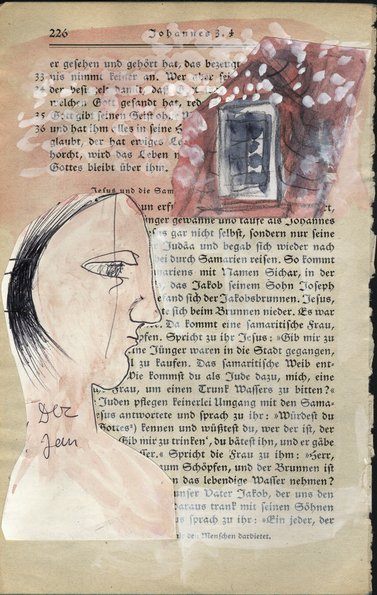 226 Johannes 3. 4
er gesehen und gehört hat, das bezeugt
33 nis nimmt keiner an. Wer aber sei
34 der besi
welchen Gott gesandt hat, red
35 Gott gibt seinen Geist ohne
36 und hat ihm alles in seine H
glaubt, der hat ewiges Le
horcht, wird das Leben n
Gottes bleibt über ihn.
Jesus und die Sam
un erf
nger gewänne und taufe als Johannes
us gar nicht selbst, sondern nur seine
Judäa und begab sich wieder nach
bei durch Samarien reisen. So kommt
mariens mit Namen Sichar, in der
, das Jakob seinem Sohn Joseph
befand sich der Jakobsbrunnen. Jesus,
te sich beim Brunnen nieder. Es war
Da kommt eine samaritische Frau,
pfen. Spricht zu ihr Jesus: »Gib mir zu
ine Jünger waren in die Stadt gegangen,
l zu kaufen. Das samaritische Weib ent-
Wie kommst du als Jude dazu, mich, eine
Frau, um einen Trunk Wassers zu bitten?«
Juden pflegen keinerlei Umgang mit den Sama-
esus antwortete und sprach zu ihr: »Würdest du
Gottes) kennen und wüßtest du, wer der ist, der
Gib mir zu trinken‘, du bätest ihn, und er gäbe
sser.« Spricht die Frau zu ihm: »Herr,
zum Schöpfen, und der Brunnen ist
n das lebendige Wasser nehmen?
unser Vater Jakob, der uns den
daraus trank mit seinen Söhnen
us sprach zu ihr: »Ein jeder, der
den Menschen darbietet.
Der